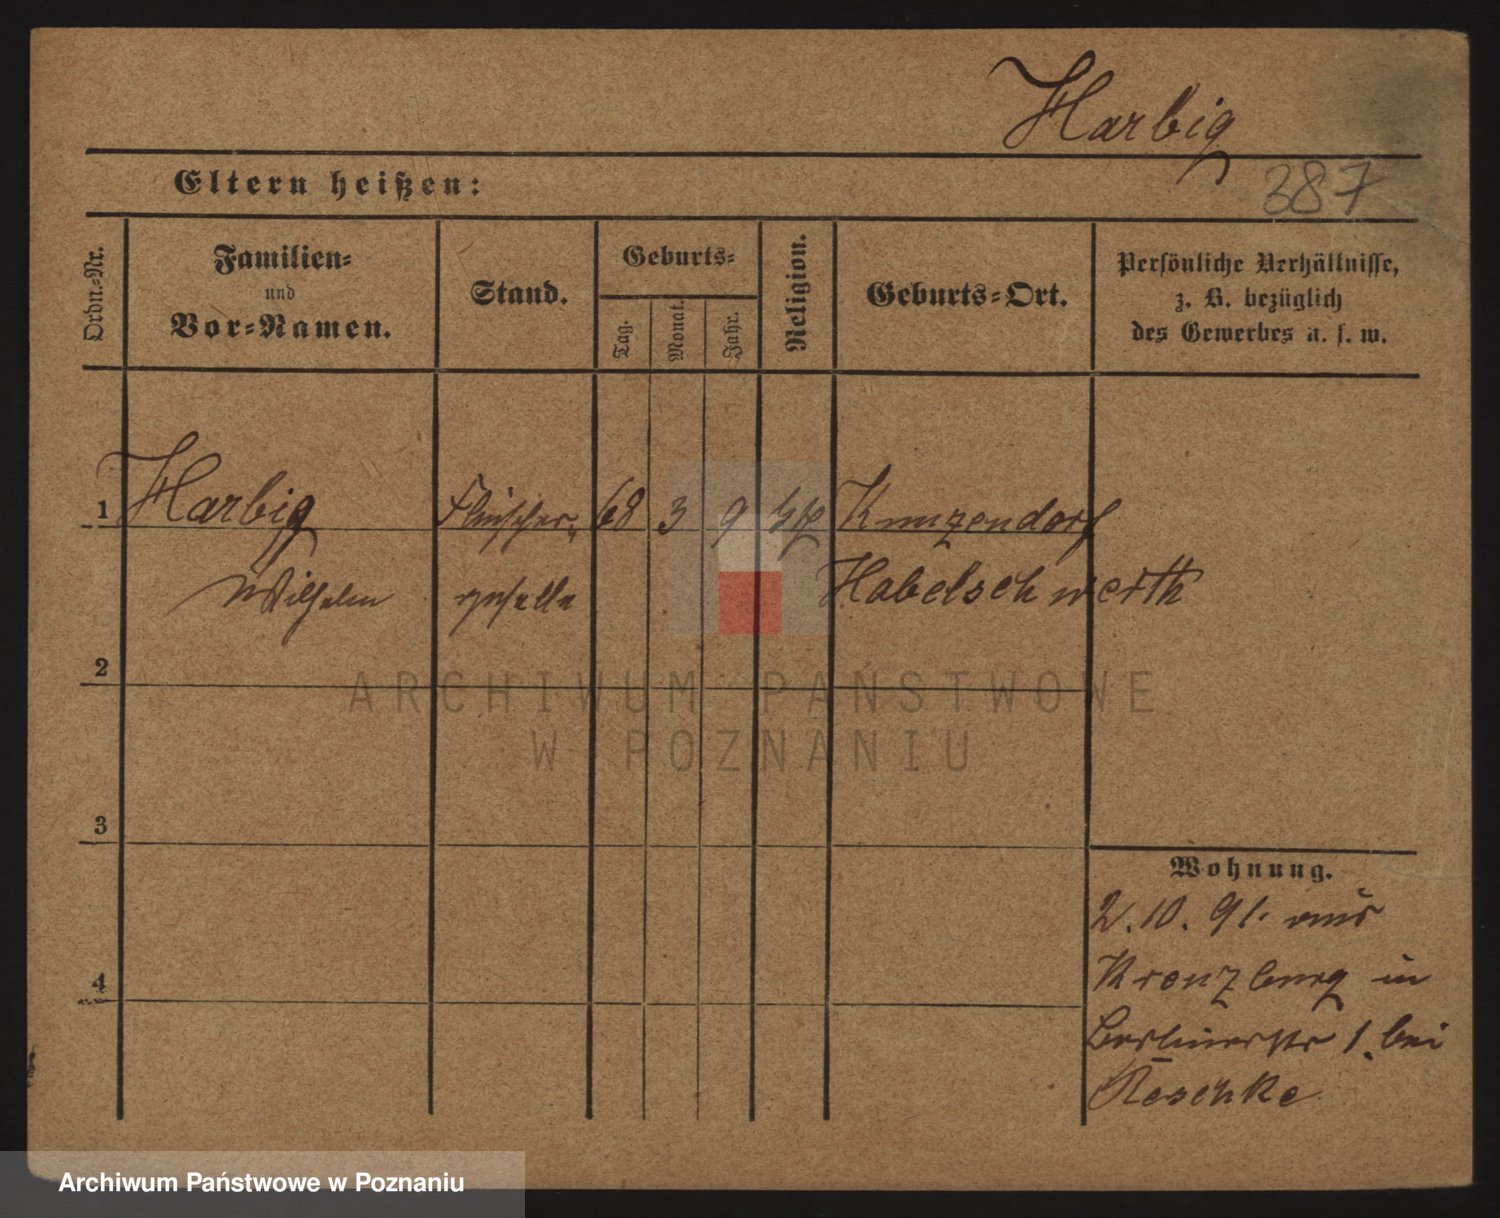 Harbig
Eltern heißen:
387
Ordn.-Nr.
Familien-
und
Vor-Namen.
Stand.
Geburts-
Tag.
Monat.
Jahr.
Religion.
Geburts-Ort.
Persönliche Verhältnisse,
z. B. bezüglich
des Gewerbes u. s. w.
1 Harbig Fleischer- 68 3 9 Kunzendorf
Wilhelm geselle Habelschwerth
2
3
4
Wohnung.
2.10.91. aus
Kreuzburg in
Berlinerstr 1. bei
Reschke
ARCHIWUM PAŃSTWOWE
W POZNANIU
Archiwum Państwowe w Poznaniu